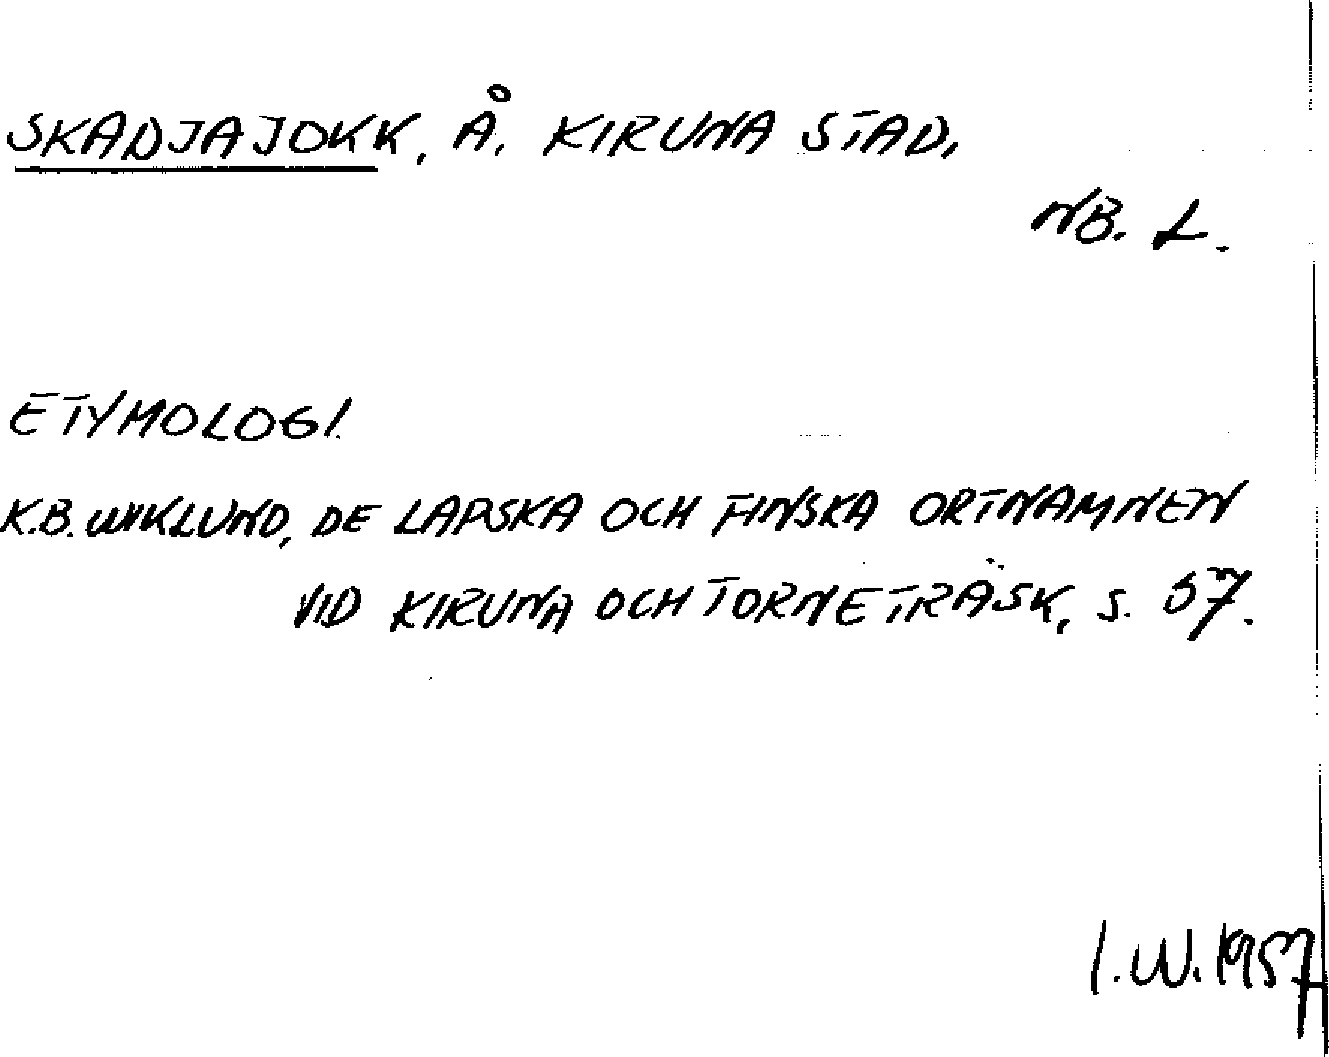 SKADJAJOKK, Å, KIRUNA STAD,
NB. L.
ETYMOLOGI.
K.B. WIKLUND, DE LAPSKA OCH FINSKA ORTNAMNEN
VID KIRUNA OCH TORNETRÄSK, S. 57.
I.W. 1957